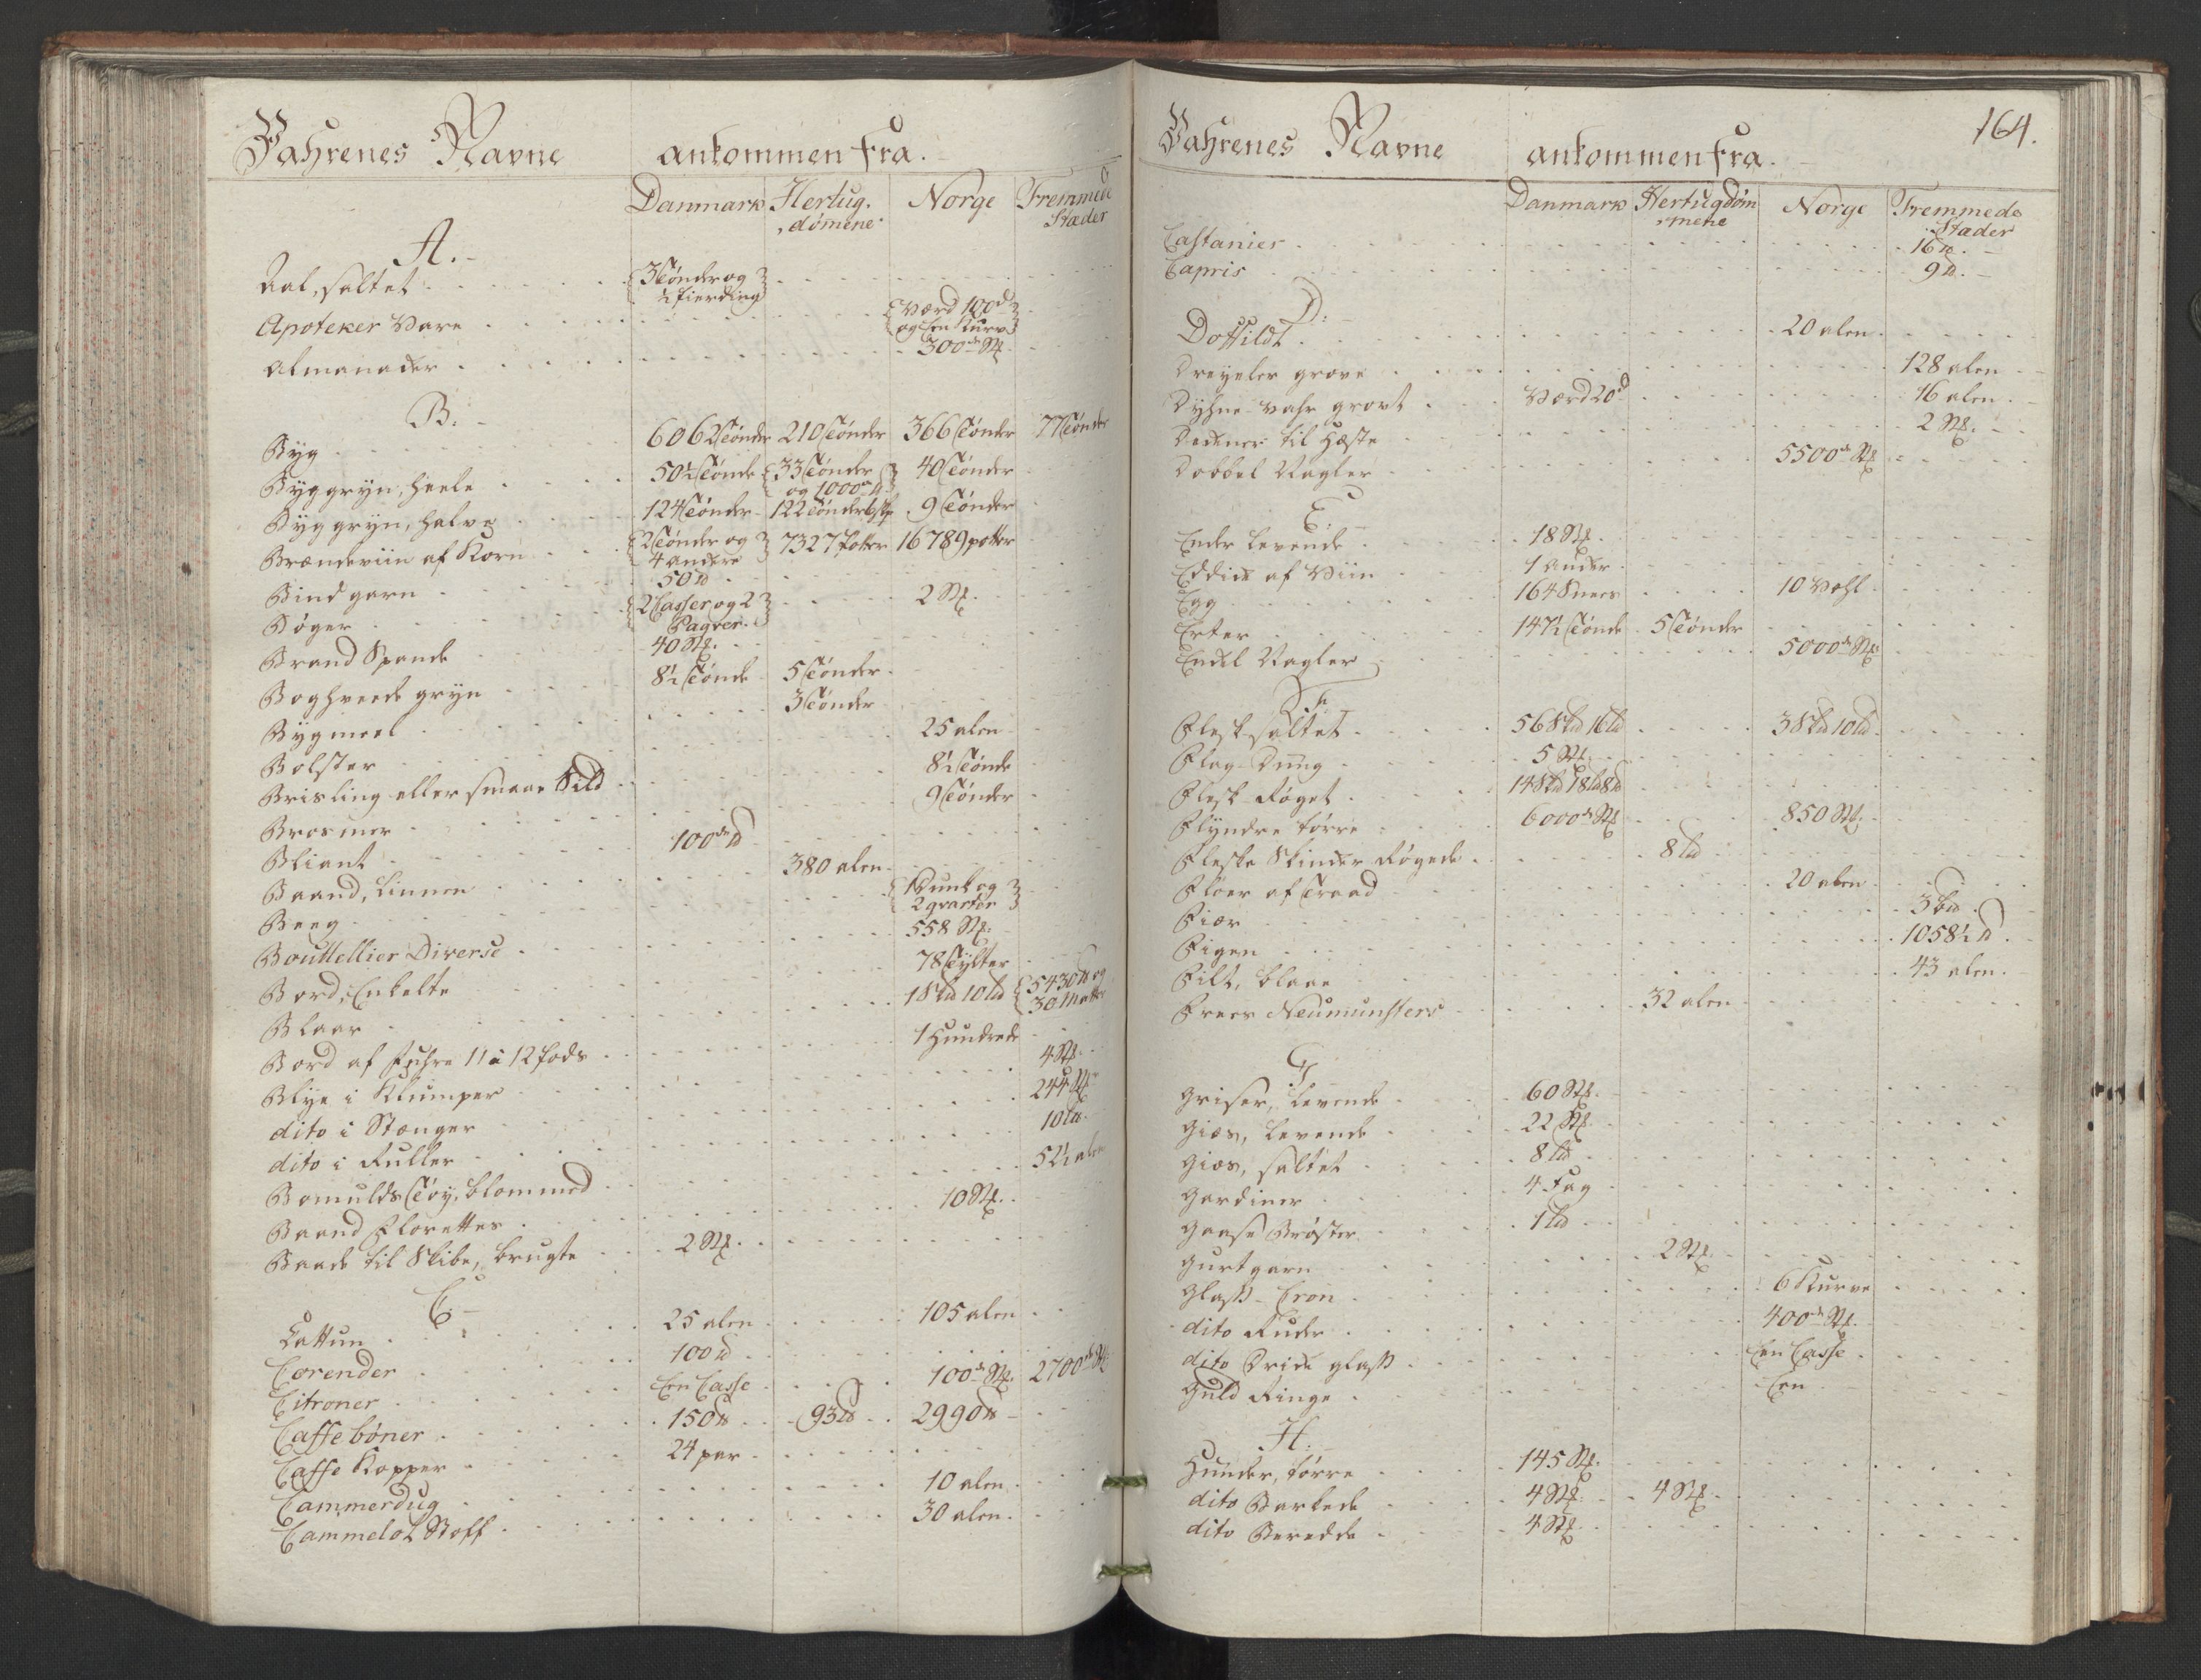 Vahrenes Navne ankommen fra.
Danmark Hertug. Norge Fremmede
dømene Stæder
A.
Aal, saltet 3 Tønder og
½ fierding
Apoteker Vare Værd 100 d
og Een Kurv
Almanacker 300de Stk
B.
Byg 6062 Tønder 210 Tønder 366 Tønder 77 Tønder
Byggryn, heele 50½ Tønde 33 Tønder 40 Tønder
og 1000de
Byggryn, halve 124 Tønder 122 Tønder 9 Tønder
Brændeviin af Korn 2 Tønder og 7327 Potter 16789 potter
4 Ankere
Bindgarn 50 ℔
Bøger 2 Casser og 2 2 Stk.
Pagver.
Brand Spande 40 Stk.
Boghveede gryn 8½ Tønde 5 Tønder
Bygmeel 3 Tønder
Bolster 25 alen
Brisling eller smaae Sild 8½ Tønde
Brosmer 9 Tønder
Bliant 100de ℔
Baand, Linnen 380 alen
Beeg og
2 qvarter
Bouttellier Diverse 558 Stk.
Bord, Enkelte 78 Tylter
Blaar 18 10 5430 ℔ og
30 Matter
Bord af Fyhre 11 a 12 fods 1 Hundrede
Blye i Klumper 4 Stk.
dito i Stænger 244 Stk
dito i Ruller 10
Bomulds Tøy, blommed 5½ alen
Baand Florettes 10 Stk.
Baade til Skibe, brugte 2 Stk.
C.
Cattun 25 alen 105 alen
Corender 100 ℔
Citroner Een Casse 100de Stk. 2700de Stk
Caffebøner 150 ℔ 93 ℔ 2990 ℔
Caffe Kopper 24 par
Cammerdug 10 alen
Cammelot Stoff 30 alen.
164.
Vahrenes Navne ankommen fra.
Danmark Hertugdøm Norge Fremmede
mene Stæder
Castanier 16 ℔.
Capris 9 ℔.
D.
Doffildt 20 alen
Dreyeler grove 128 alen
Dyhne Vahr grovt Værd 20 d 16 alen.
Deckener til Hæste 2 Stk.
Dobbel Nagler 5500de Stk
E.
Ender levende 18 Stk.
Eddick af Viin 1 Anker
Egg 164 Snees 10 Vohl
Erter 147½ Tønde 5 Tønder
Endel Nagler 5000de Stk
F.
Flesk saltet 56 16 38 10
Flag-Dung 5 Stk.
Flesk Røget 14 18 8
Flyndre tørre 6000de Stk 850 Stk.
Fleske Skinker Røgede 8
Floer af Traad 20 alen
Fiær 3
Figen 1058½ ℔
Filt, blaae 43 alen.
Freer Neumunsters 32 alen
G
Griser, Levende 60 Stk.
Giæs, Levende 22 Stk
Giæs, saltet 8
Gardiner 4 Fag
Gaase Brøster 1
Gurtgarn 2 Stk.
Glass-Cron 6 Kurve
dito Ruder 400de Stk.
dito Drick glass Een Casse
Guld Ringe Een
H.
Huuder, tørre 145 Stk.
dito Barkede 4 Stk. 4 Stk.
dito Beredde 4 Stk.